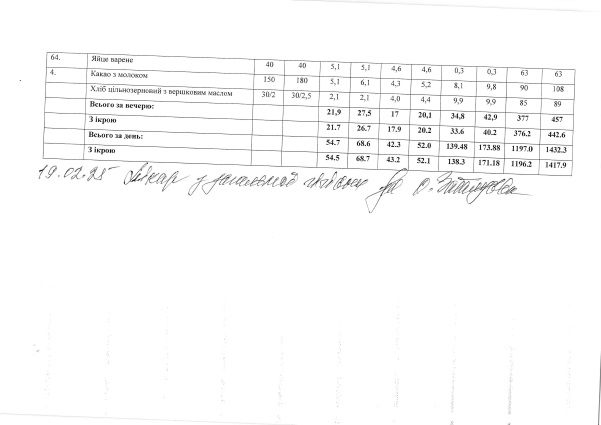 64. Яйце варене 40 40 5,1 5,1 4,6 4,6 0,3 0,3 63 63
4. Какао з молоком 150 180 5,1 6,1 4,3 5,2 8,1 9,8 90 108
Хліб цільнозерновий з вершковим маслом 30/2 30/2,5 2,1 2,1 4,0 4,4 9,9 9,9 85 89
Всього за вечерю: 21,9 27,5 17 20,1 34,8 42,9 377 457
З ікрою 21.7 26.7 17.9 20.2 33.6 40.2 376.2 442.6
Всього за день: 54.7 68.6 42.3 52.0 139.48 173.88 1197.0 1432.3
З ікрою 54.5 68.7 43.2 52.1 138.3 171.18 1196.2 1417.9
19.02.25 Лікар з